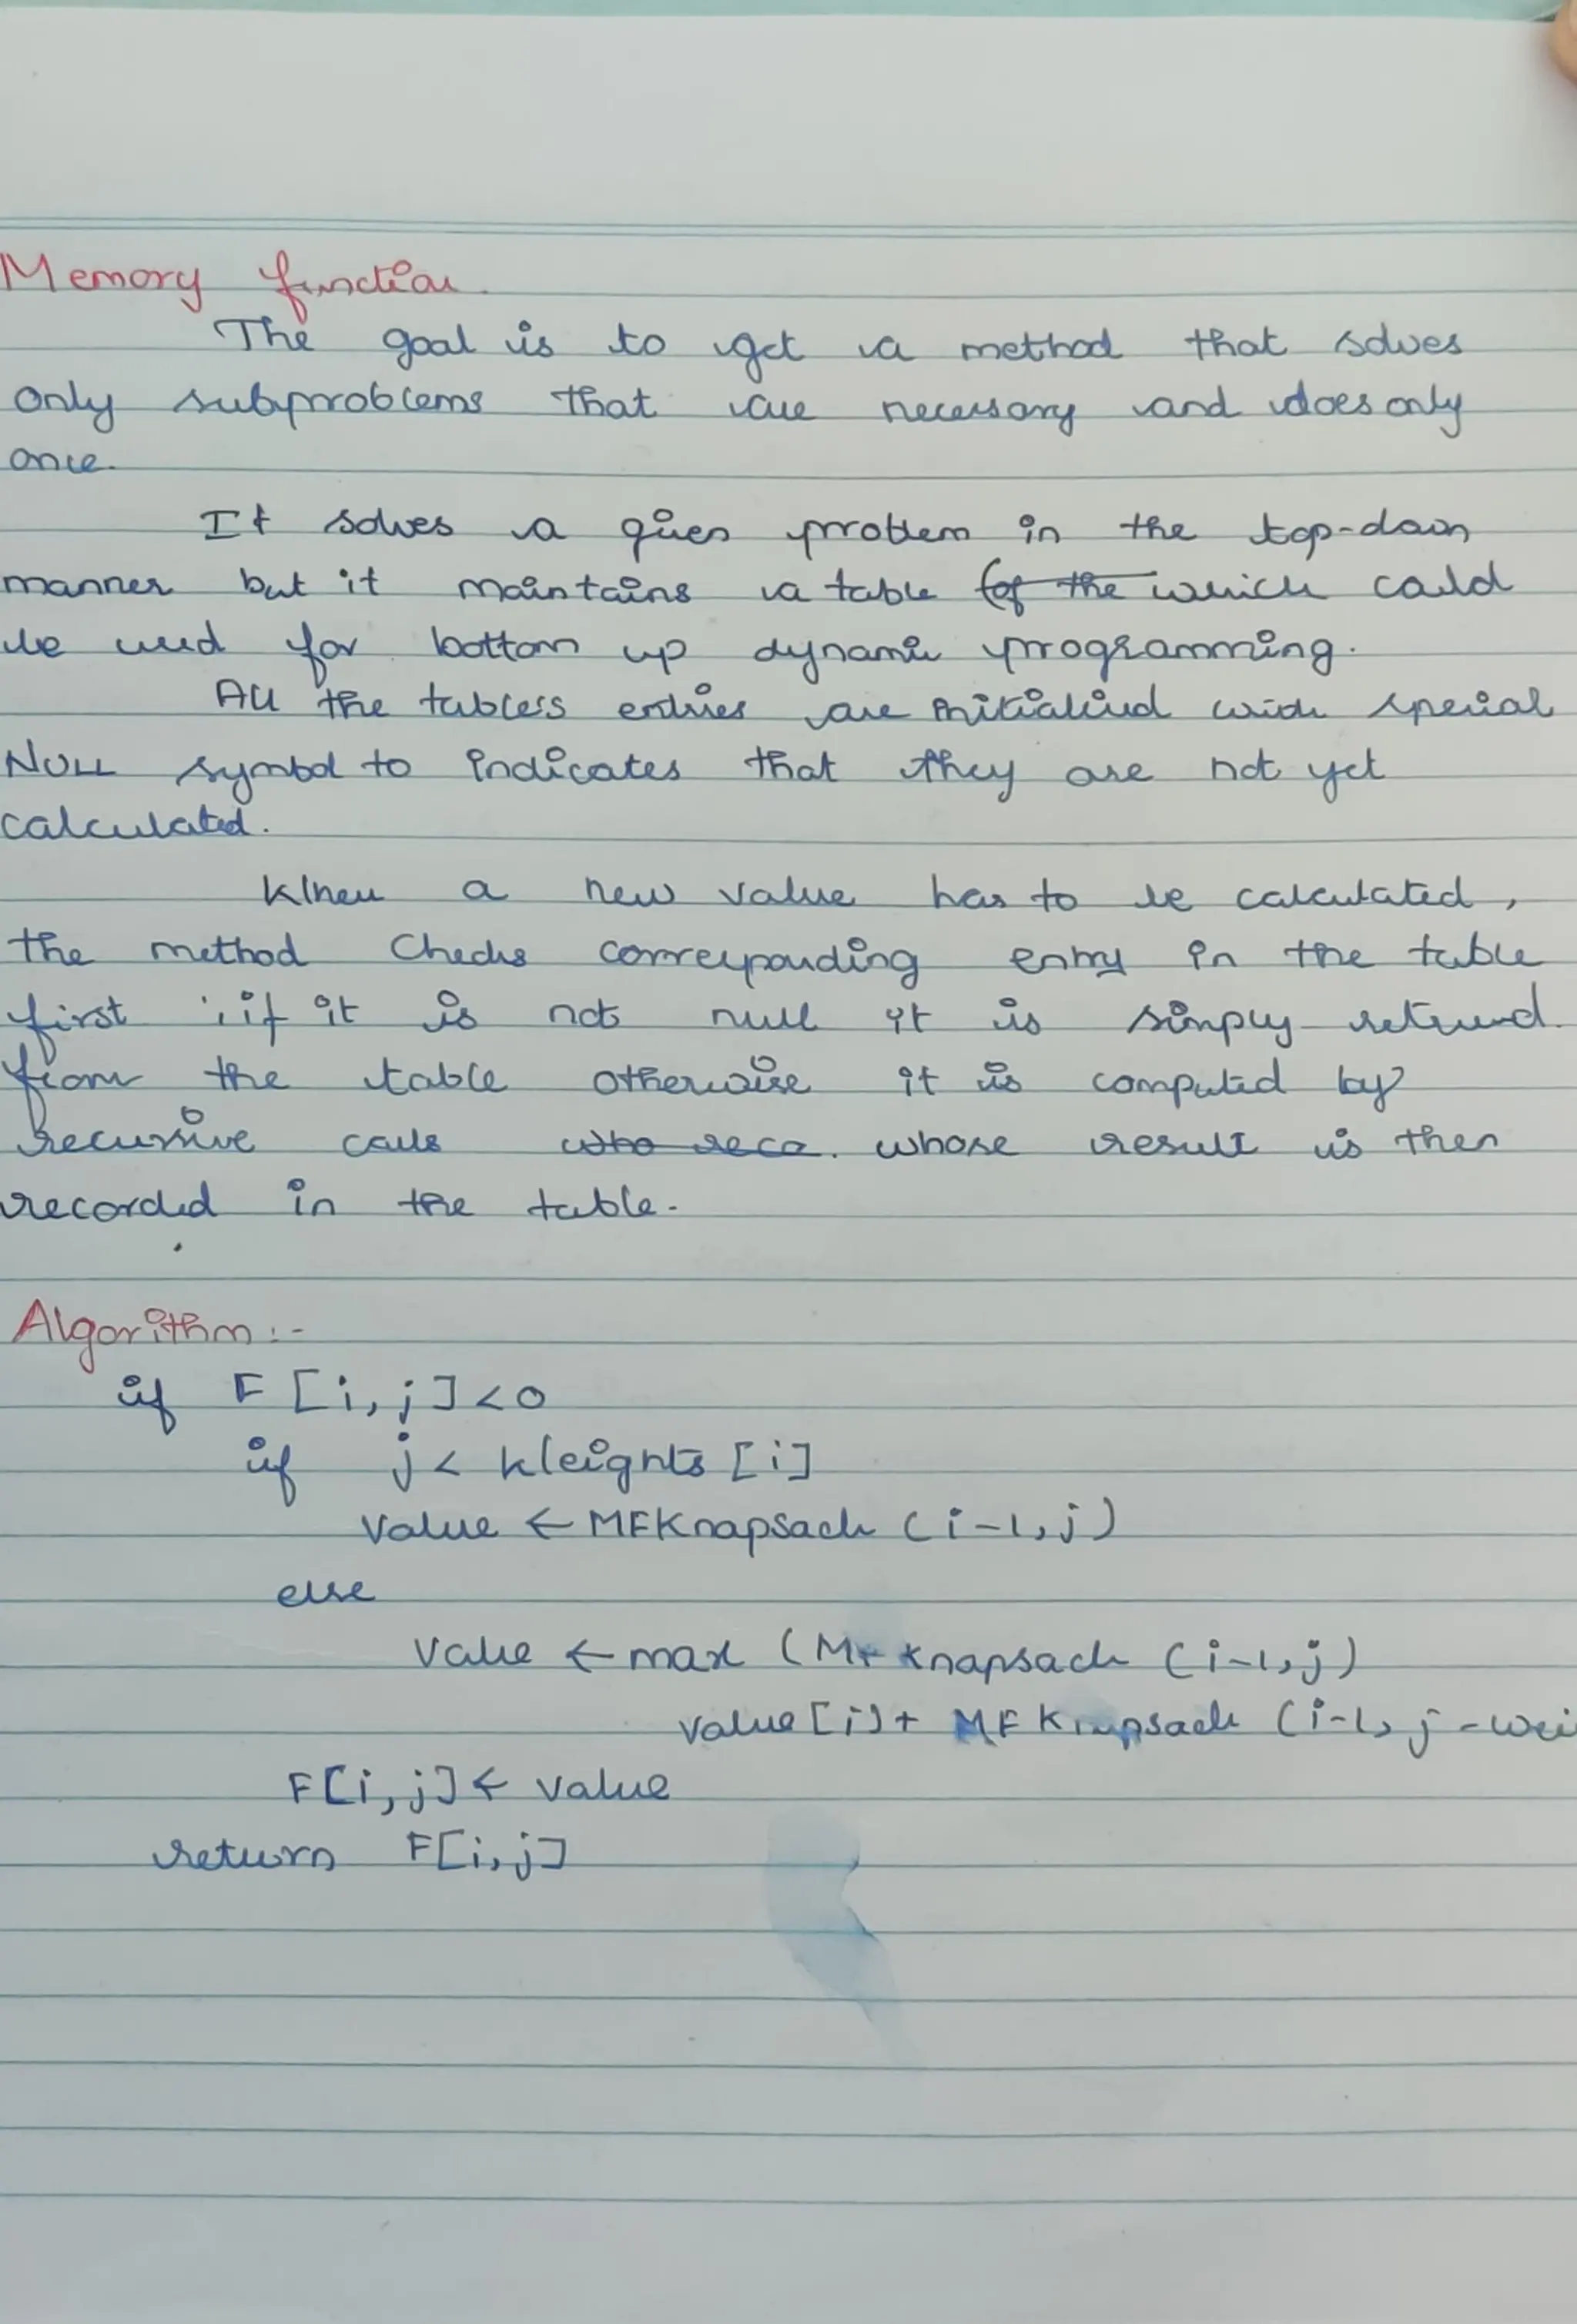 Memory function.
The goal is to get a method that solves
only subproblems that are necessary and does only
once.
It solves a given problem in the top-down
manner but it maintains a table (of the which could
be used for bottom up dynamic programming.
All the tables's entries are initialized with special
NULL symbol to indicates that they are not yet
calculated.
When a new value has to be calculated,
the method Checks corresponding entry in the table
first ; if it is not null it is simply retrived
from the table otherwise it is computed by
recursive calls who reco. whose result is then
recorded in the table.
Algorithm :-
if F[i,j]<0
if j < Weights [i]
Value ← MFKnapsack (i-1,j)
else
Value ← max (MFKnapsack (i-1,j)
value[i]+ MFKnapsack (i-1, j-wei
F[i,j] ← value
return F[i,j]